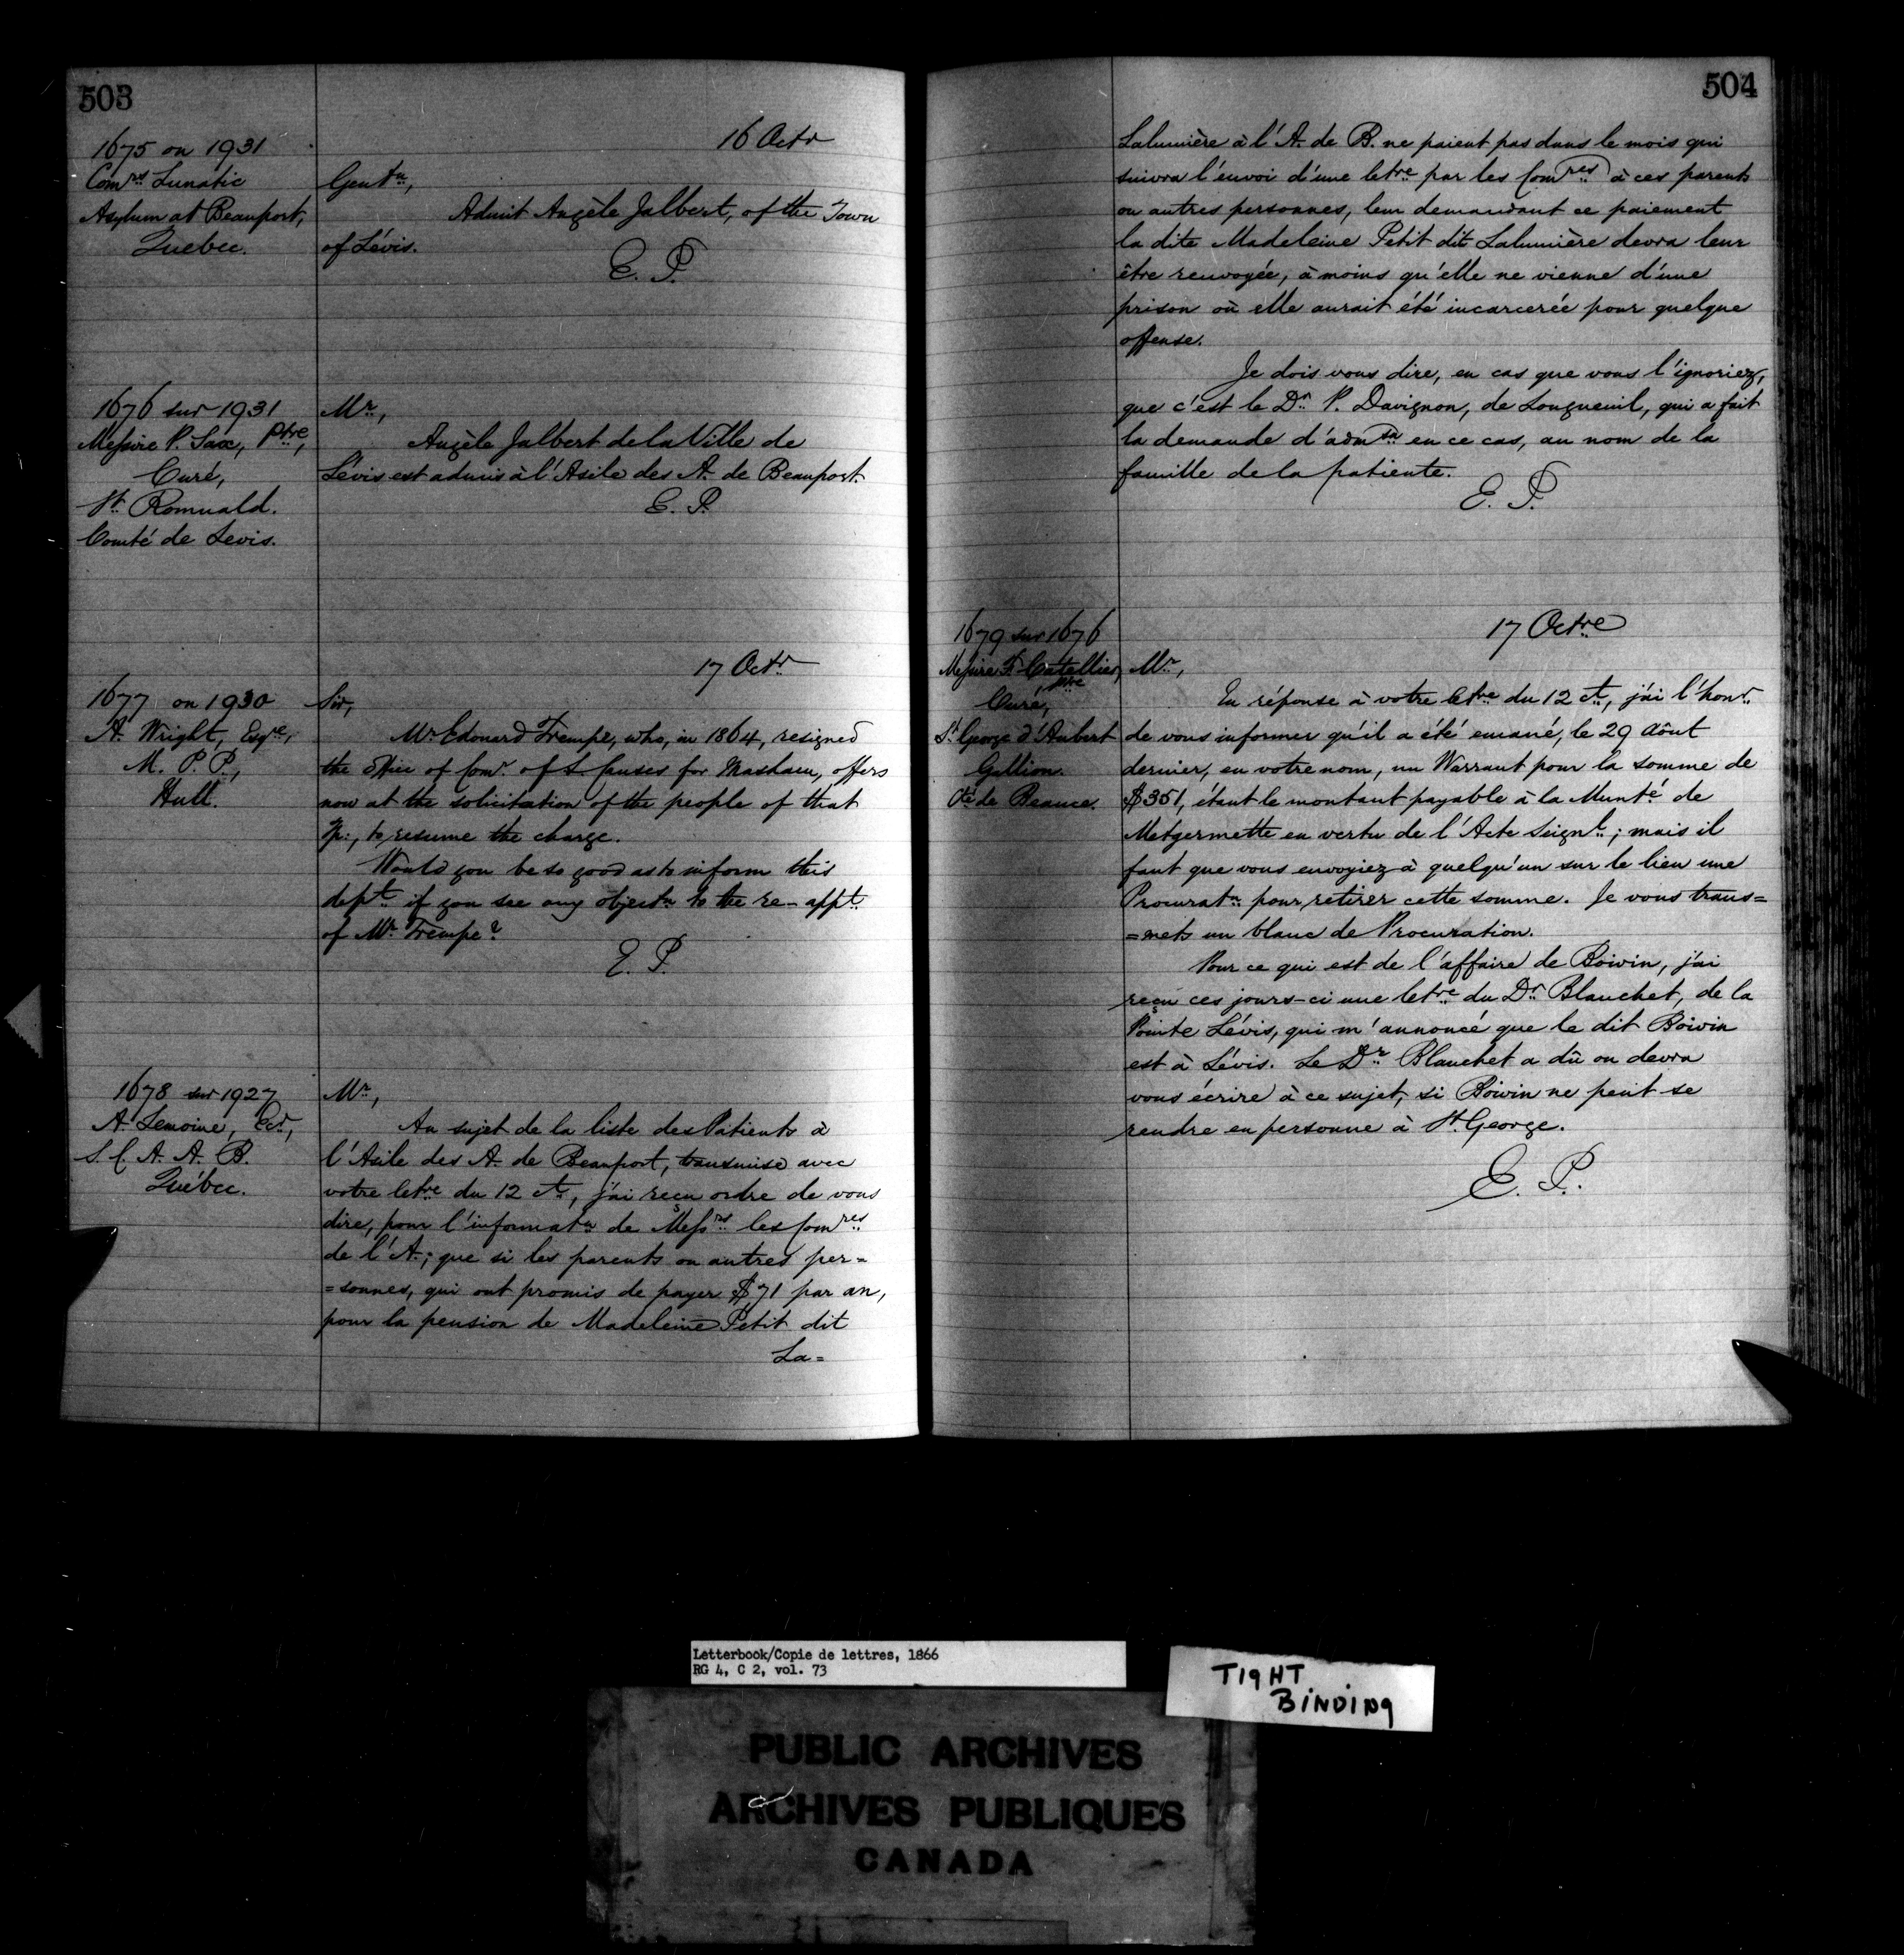 503
1675 on 1931
Comrs Lunatic
Asylum at Beauport,
Quebec.
16 Octr
Gentn,
Admit Angèle Jalbert, of the Town
of Lévis.
E. P.
1676 sur 1931
Messire P. Sax, Ptre,
Curé,
St. Romuald.
Comté de Levis.
Mr,
Angèle Jalbert de la Ville de
Lévis est admis à l'Asile des A. de Beauport.
E. P.
17 Octr
1677 on 1930
A. Wright, Esqre,
M. P. P.,
Hull.
Sir,
Mr Edouard Trempe, who, in 1864, resigned
the office of Comr of S. Causes for Masham, offers
now at the solicitation of the people of that
Tp:, to resume the charge.
Would you be so good as to inform this
dept if you see any objectn to the re-appt
of Mr Trempe?
E. P.
1678 sur 1927
A. Lemoine, Ecr,
S. C. A. A. B.
Québec.
Mr,
Au sujet de la liste des Patients à
l'Asile des A. de Beauport, transmise avec
votre letre du 12 ct, j'ai reçu ordre de vous
dire, pour l'informatn de Messrs les Comres
de l'A.; que si les parents ou autres per=
=sonnes, qui ont promis de payer $71 par an,
pour la pension de Madeleine Petit dit
La=
504
Lalumière à l'A. de B. ne paient pas dans le mois qui
suivra l'envoi d'une letre par les Comres à ces parents
ou autres personnes, leur demandant ce paiement
la dite Madeleine Petit dit Lalumière devra leur
être renvoyée, à moins qu'elle ne vienne d'une
prison où elle aurait été incarcerée pour quelque
offense.
Je dois vous dire, en cas que vous l'ignoriez,
que c'est le Dr P. Davignon, de Longueuil, qui a fait
la demande d'admsn en ce cas, au nom de la
famille de la patiente.
E. P.
1679 sur 1676
Messire F. Catellier, ptre
Curé,
St. George d'Aubert
Gallion.
Cté de Beauce.
17 Octre
Mr,
En réponse à votre letre du 12 ct, j'ai l'honr
de vous informer qu'il a été emané, le 29 Août
dernier, en votre nom, un Warrant pour la somme de
$351, étant le montant payable à la Munté de
Metgermette en vertu de l'Acte Seignl; mais il
faut que vous envoyiez à quelqu'un sur le lieu une
Procuratn pour retirer cette somme. Je vous trans=
=mets un blanc de Procuration.
Pour ce qui est de l'affaire de Boivin, j'ai
reçu ces jours-ci une letre du Dr Blanchet, de la
Pointe Lévis, qui m'annoncé que le dit Boivin
est à Lévis. Le Dr Blanchet a dû ou devra
vous écrire à ce sujet, si Boivin ne peut se
rendre en personne à St. George.
E. P.
Letterbook/Copie de lettres, 1866
RG 4, C 2, vol. 73
TIGHT
BINDING
PUBLIC ARCHIVES
ARCHIVES PUBLIQUES
CANADA